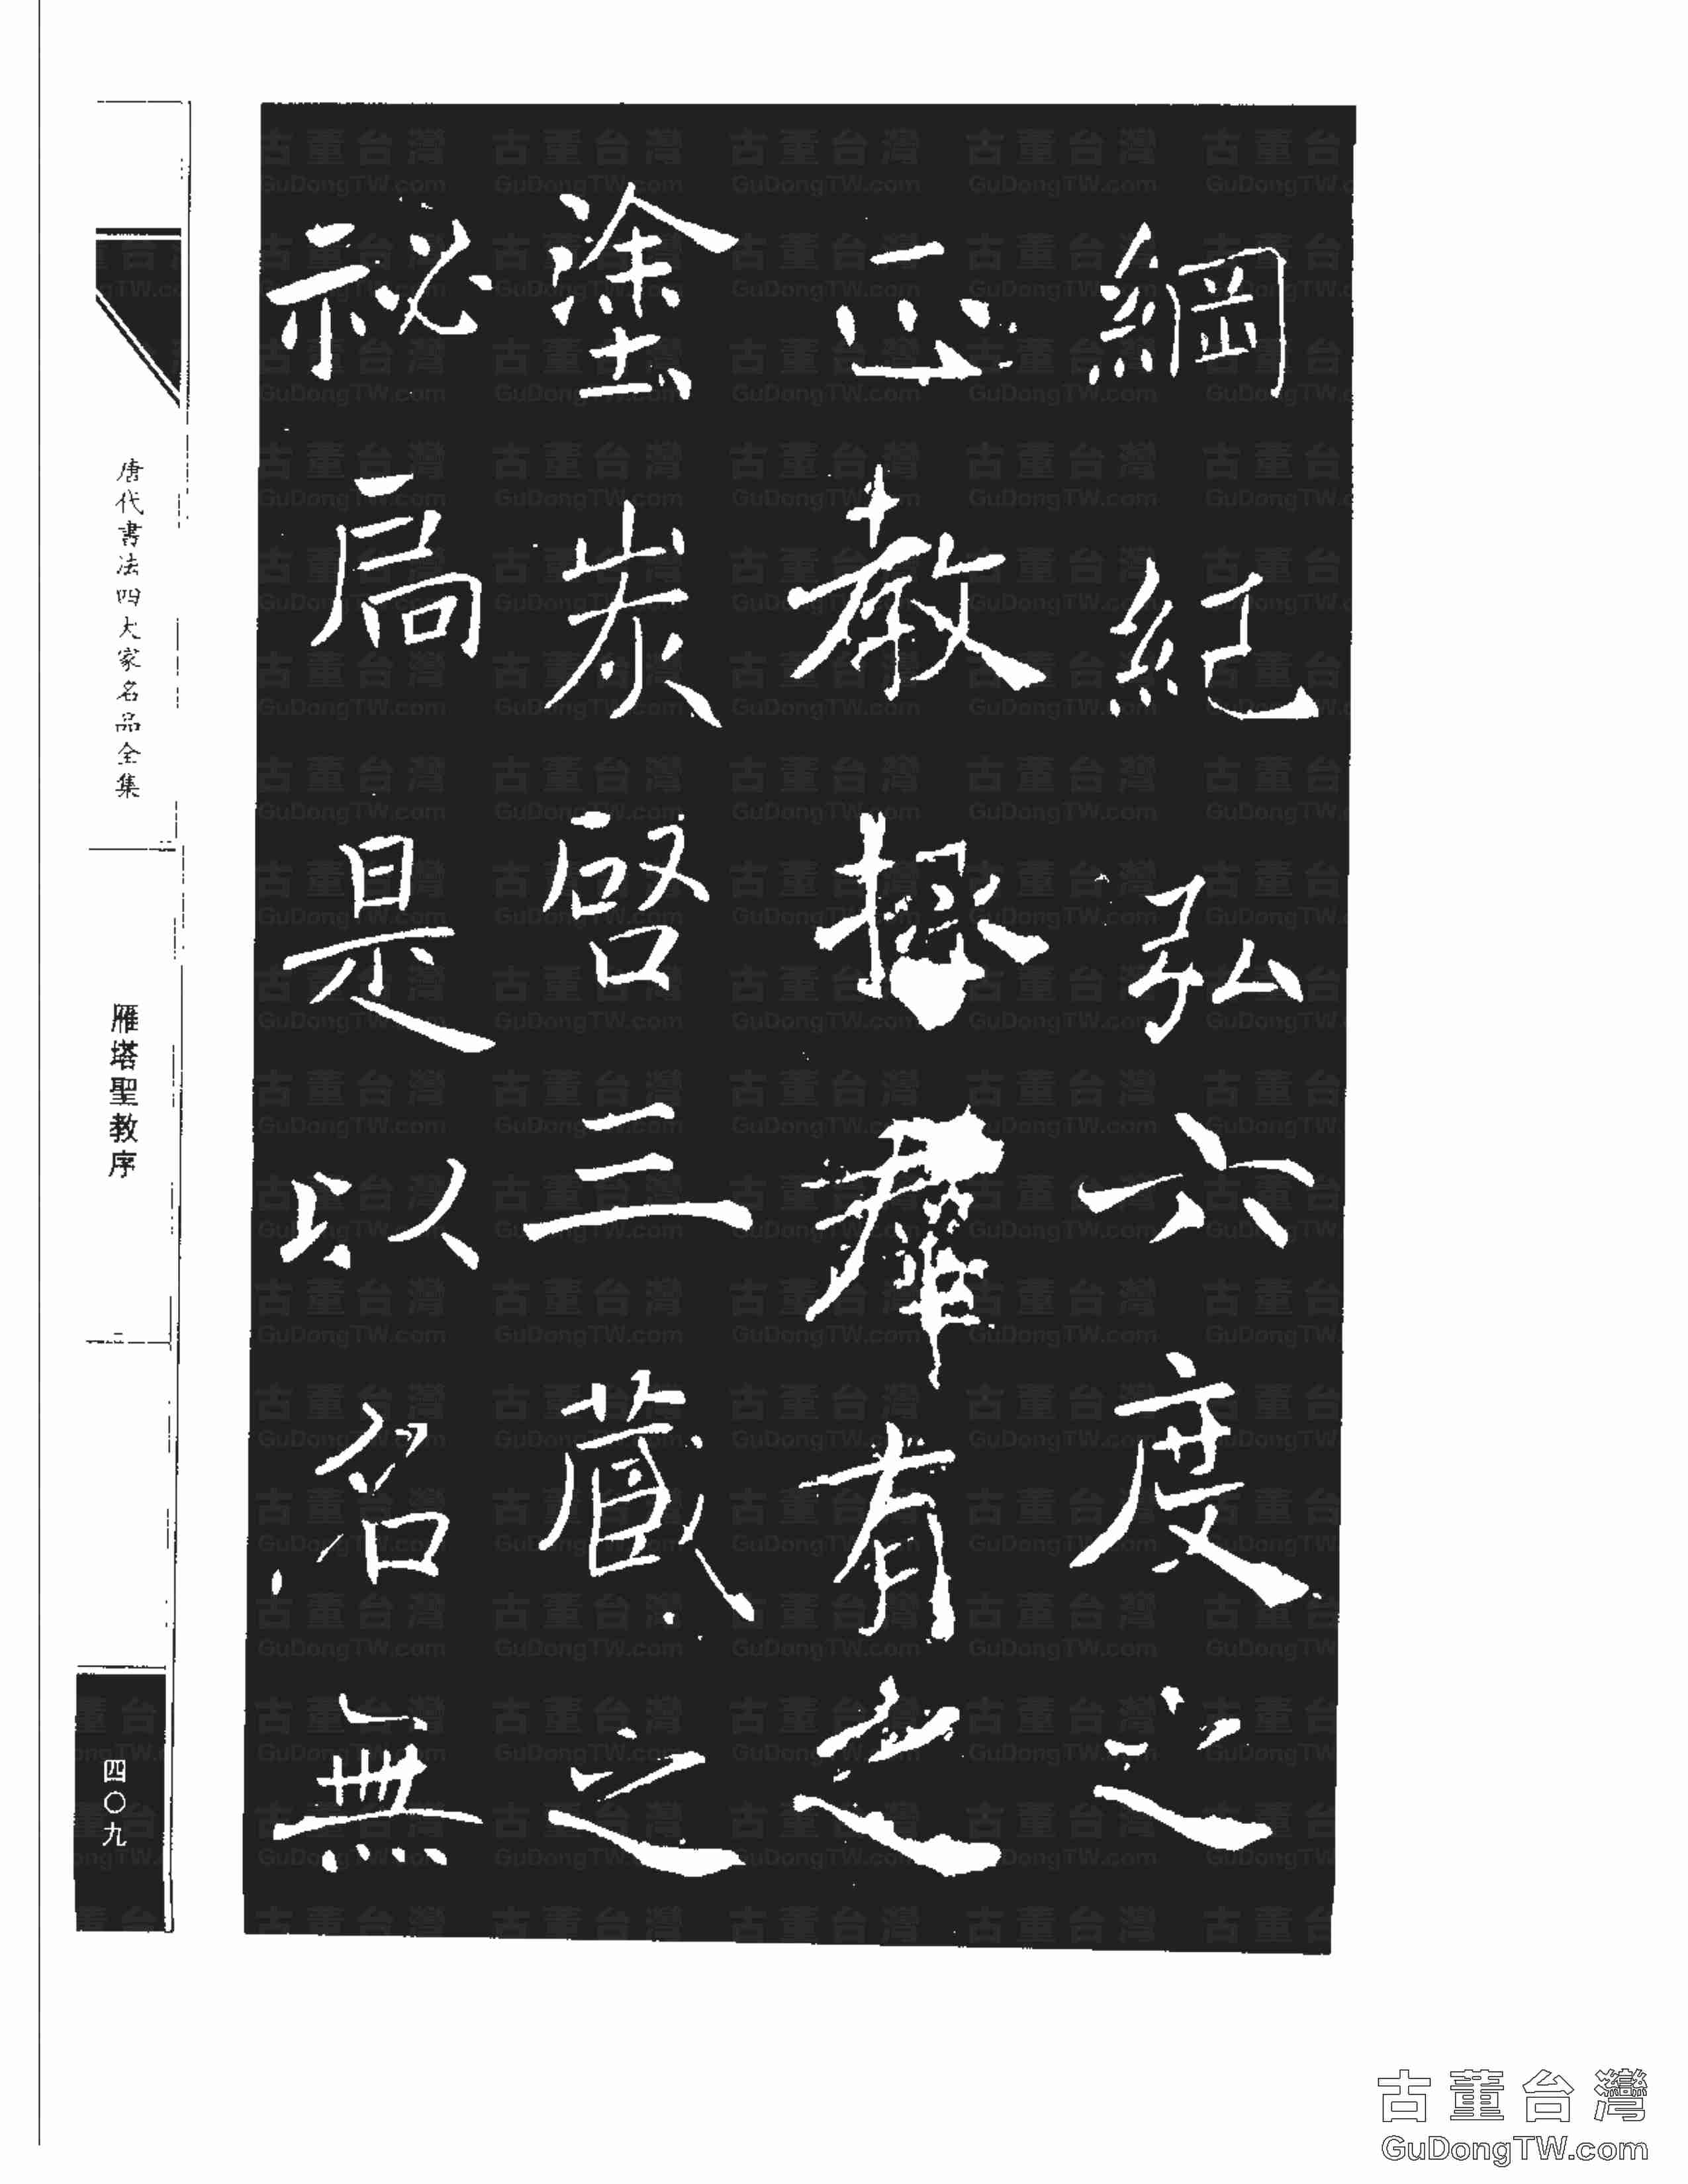 綱紀弘六度之
正教拯羣有之
塗炭啓三藏之
祕扃是以名無
唐代書法四大家名品全集
雁塔聖教序
四〇九
古董台灣
GuDongTW.com